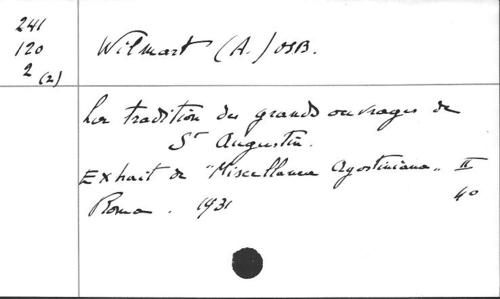 241
120
2 (2)
Wilmart (A.) OSB.
La tradition des grands ouvrages de
St Augustin.
Extrait de "Miscellanea Agostiniana" II
Roma. 1931
40